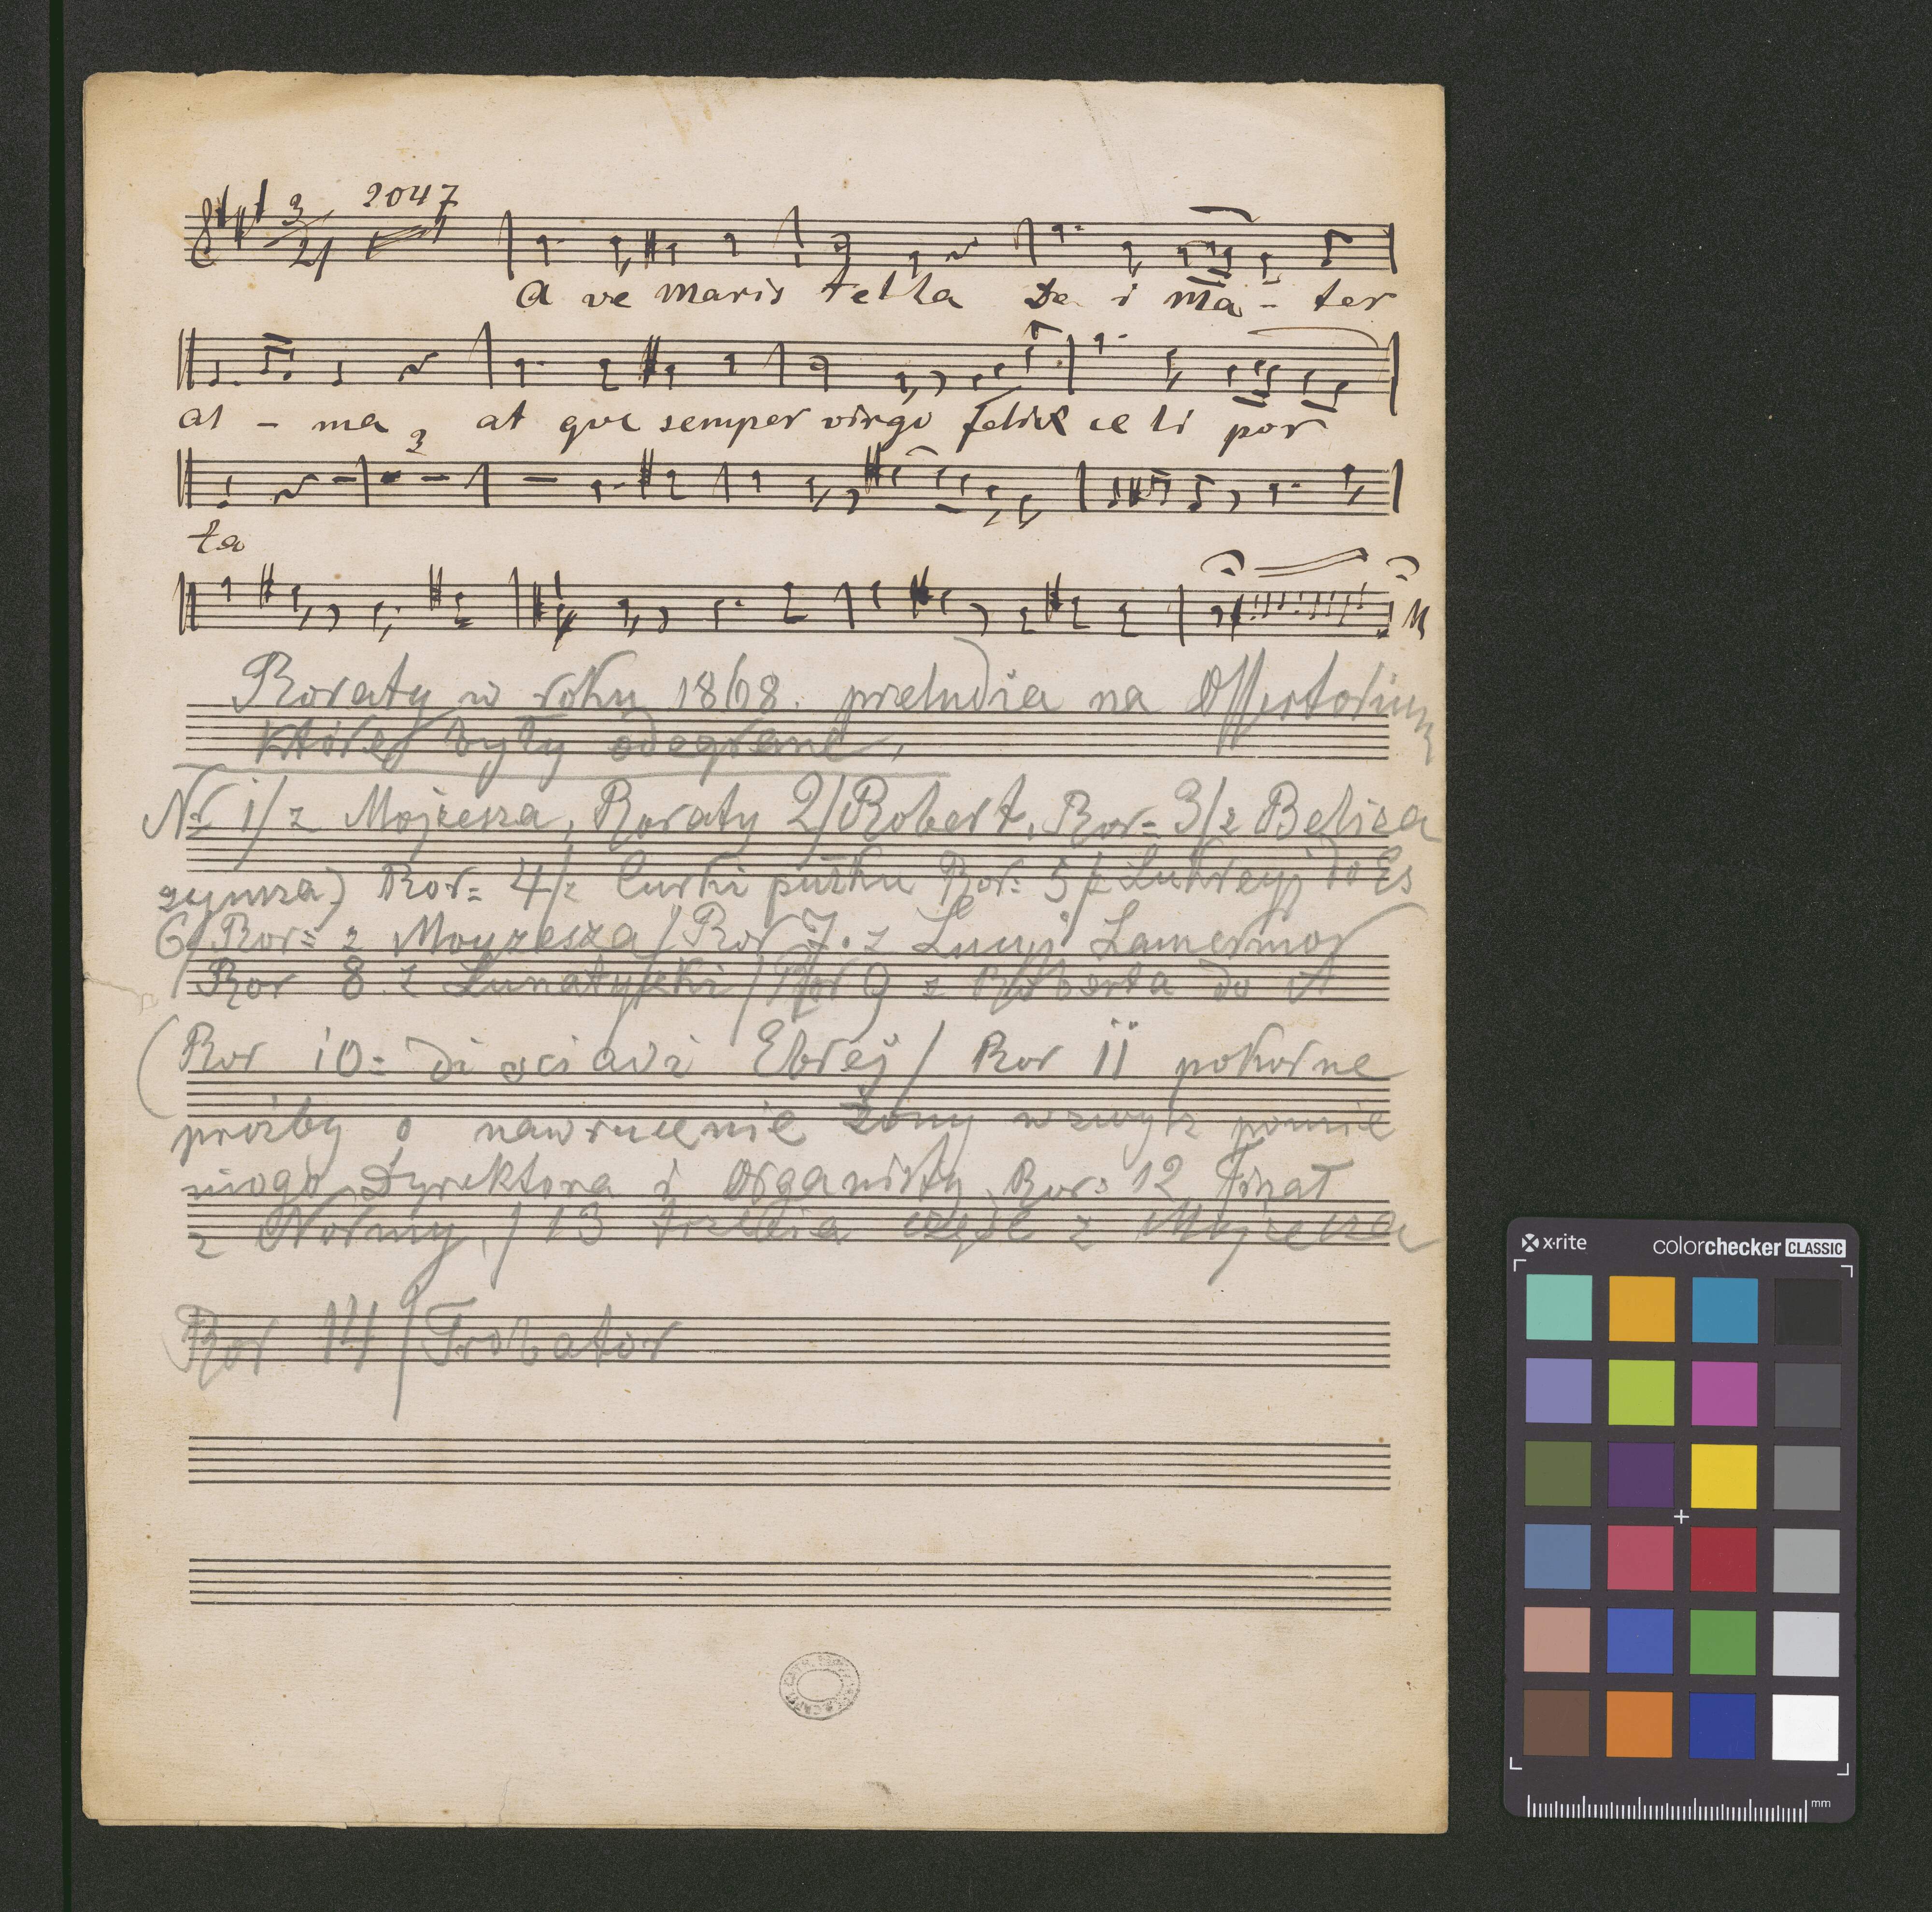 3/21 2047
A ve maris tella De i ma - ter
al - ma at que semper virgo felix ce li por
3
ta
Roraty w roku 1868. preludia na Offertorium
które były odegrane,
Nr 1/ z Mojżesza, Roraty 2/ Robert, Ror= 3/ z Beliza
ryusza) Ror= 4/z Curki pułku Ror= 5/z Lukrecyj do Es
6/ Ror= z Moyzesza / Ror 7. z Lucyi Lamermor
/ Ror 8 z Lunatyczki / Ror 9 z Roberta do A
(Ror 10= di sciavi Ebrej / Ror 11 pokorne
prożby o nawrucenie żony wzwyż pomie
niogo Dyrektora i Organisty Ror= 12 Finał
z Normy, / 13 trzecia część z Mojżesza
Ror 14 / Trobator
x·rite colorchecker CLASSIC
mm